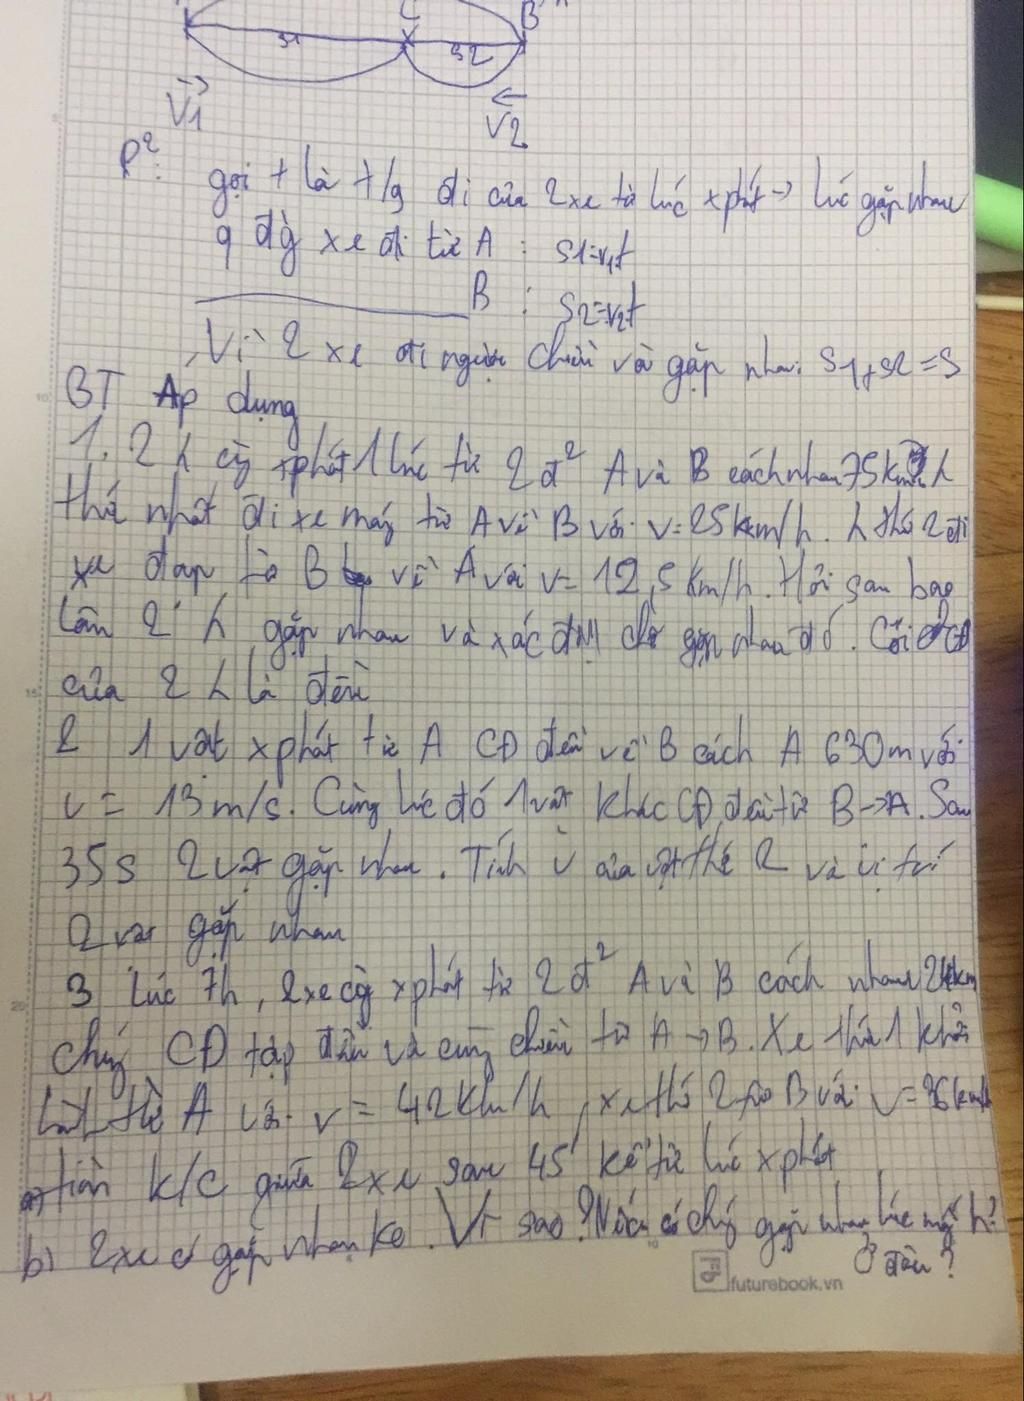 C B
S1 S2
V1 V2
P²:
gọi t là t/g đi của 2 xe từ lúc xphát → lúc gặp nhau
q đg xe đi từ A : S1=v1t
B : S2=v2t
Vì 2 xe đi ngược chiều và gặp nhau: S1+S2=S
BT Áp dụng
1. 2 h cg xphát 1 lúc từ 2 đ² A và B cách nhau 75km. h
thứ nhất đi xe máy từ A về B với v=25km/h. h thứ 2 đi
xe đạp từ B về A với v= 12,5 km/h. Hỏi sau bao
lâu 2 h gặp nhau và xác định chỗ gặp nhau đó. Coi CĐ
của 2 h là đều
2 1 vật xphát từ A CĐ đều về B cách A 630m với
v= 13m/s. Cùng lúc đó 1 vật khác CĐ đều từ B→A. Sau
35s 2 vật gặp nhau. Tính v của vật thứ 2 và vị trí
2 vật gặp nhau
3 lúc 7h, 2 xe cg xphát từ 2 đ² A và B cách nhau 24km
chúng CĐ đều và cùng chiều từ A→B. Xe thứ 1 khởi
hành từ A với v= 42km/h, xe thứ 2 từ B với v=36km/h
a) k/c giữa 2 xe sau 45' kể từ lúc xphát
b) 2 xe có gặp nhau ko. Vì sao? Nếu có chúng gặp nhau lúc mấy h?
Ở đâu?
futurebook.vn